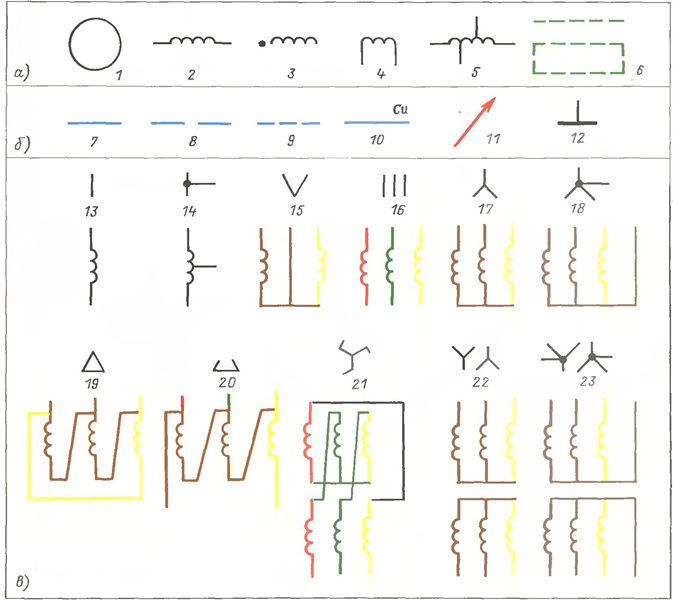 а) 1 2 3 4 5 6
Cu
б) 7 8 9 10 11 12
13 14 15 16 17 18
19 20 21 22 23
в)